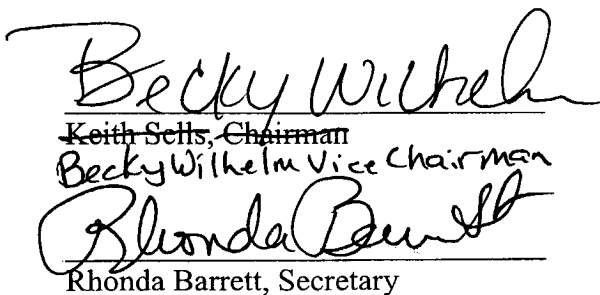 Becky Wilhelm
Keith Sells, Chairman
Becky Wilhelm Vice Chairman
Rhonda Barrett
Rhonda Barrett, Secretary